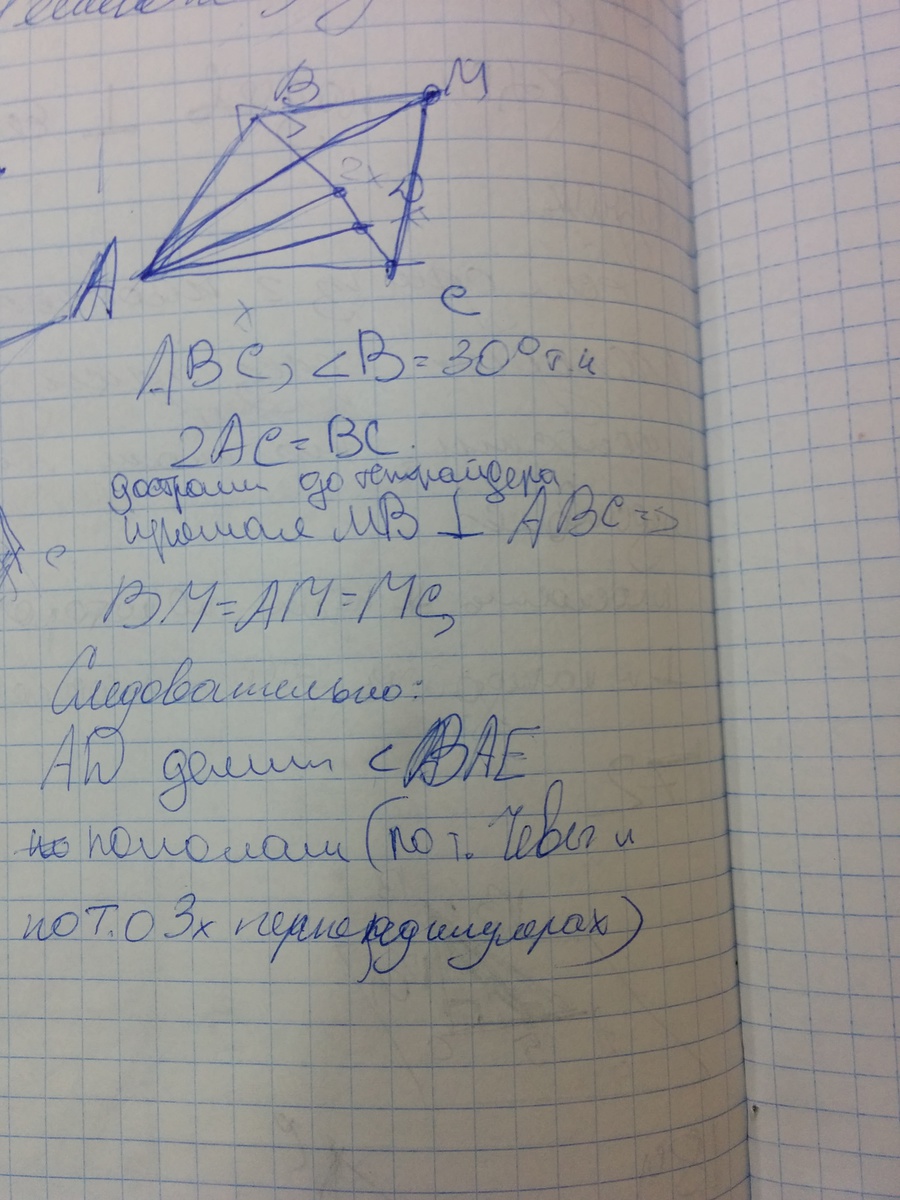 B
M
2x
D
x
A
x
C
ABC, <B = 30° т.к
2AC = BC.
достроим до тетрайдера
прямая MB ⊥ ABC =>
BM = AM = MC,
Следовательно:
AD делит < BAE
пополам (по т. Чевы и
по т. о 3х перпендикулярах)